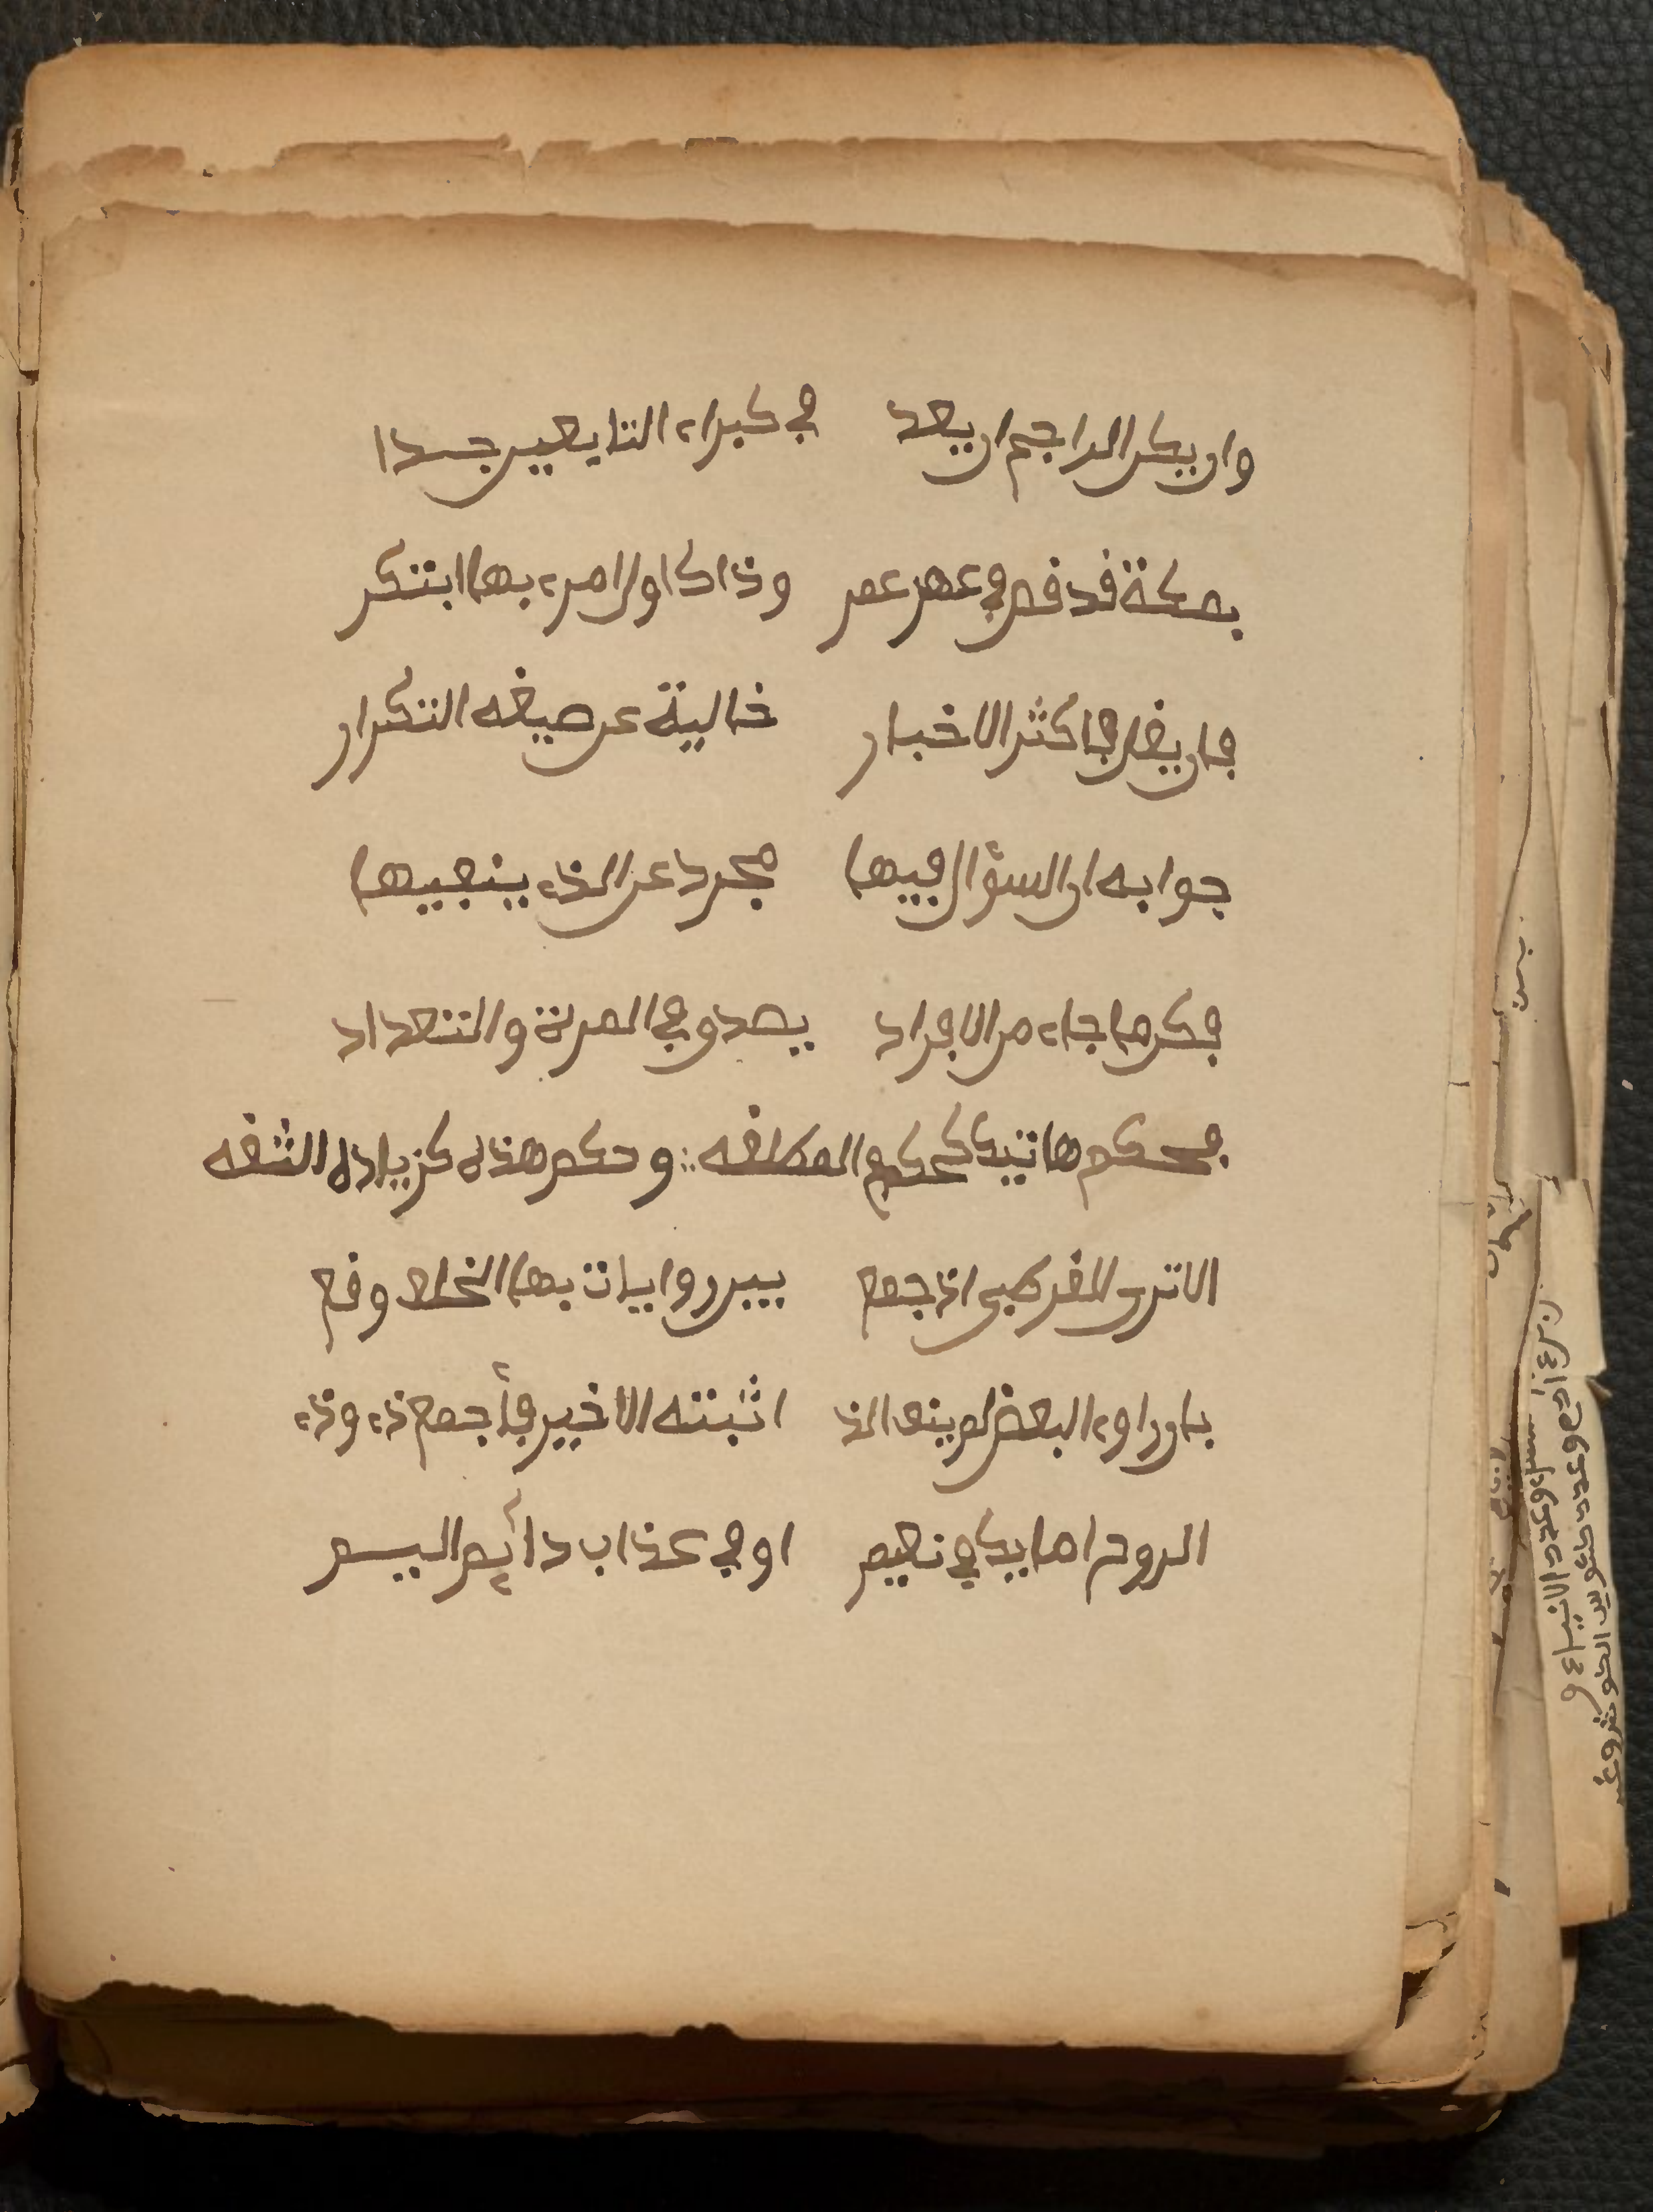 وان يكن الراجح ان يعد في كبراء التابعين جدا
بمكة قد قص في عهد عمر وذاك اول امرء بها ابتكر
فان يقل فاكثر الاخبار خالية عن صيغه التكرار
جوابه ان السؤال فيها مجرد عن الذء ينفيها
فكل ما جاء من الافراد يصدق في المرة والتعداد
فحكم هاتيك كحكم المطلقه وحكم هذه كزيادة الثقه
الا ترى للقرطبى اذ جمع بين روايات بها الخلاف وقع
بان راوء البعض لم ينف الذ اثبته الاخير فأجمع ذء وذء
الروح اما يك في نعيم او في عذاب دائم اليم